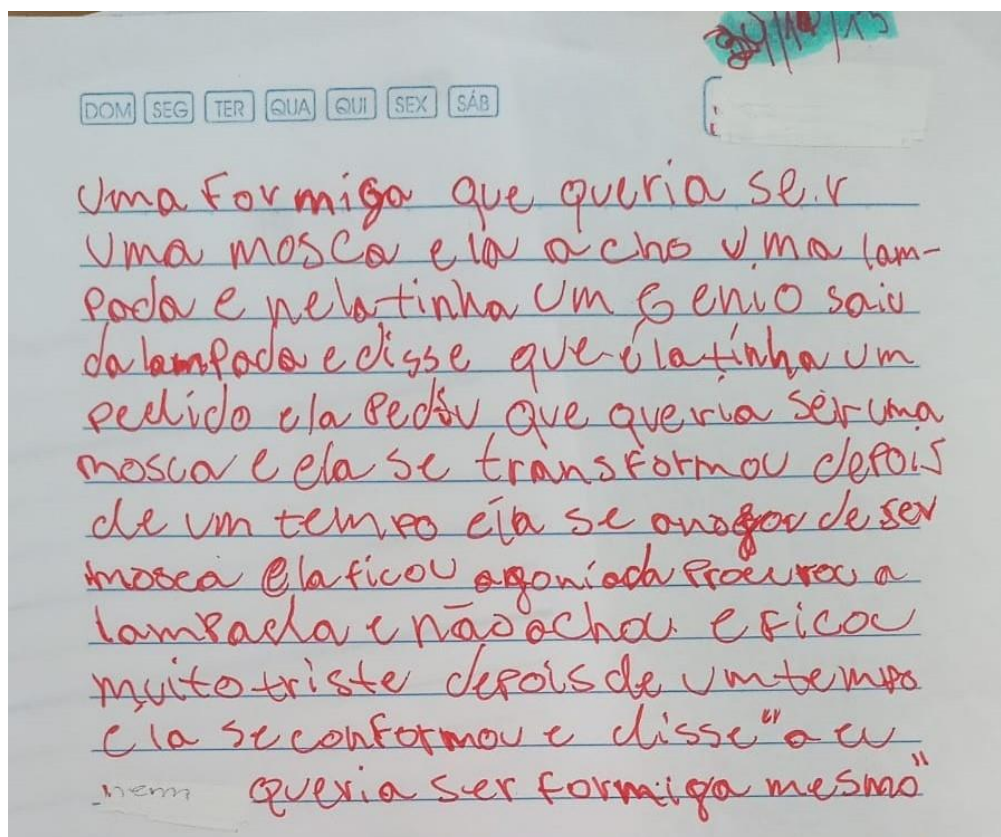 DOM SEG TER QUA QUI SEX SÁB
Uma Formiga que queria se.r
uma mosca ela acho uma lam-
pada e nela tinha um Genio saiu
da lampada e disse que ela tinha um
pedido ela pediu que queria ser uma
mosca e ela se transformou depois
de um tempo ela se de ser
mosca ela ficou agoniada Procurou a
lampada e não achou e ficou
muito triste depois de um tempo
ela se conformou e disse "a eu
nem queria ser formiga mesmo"